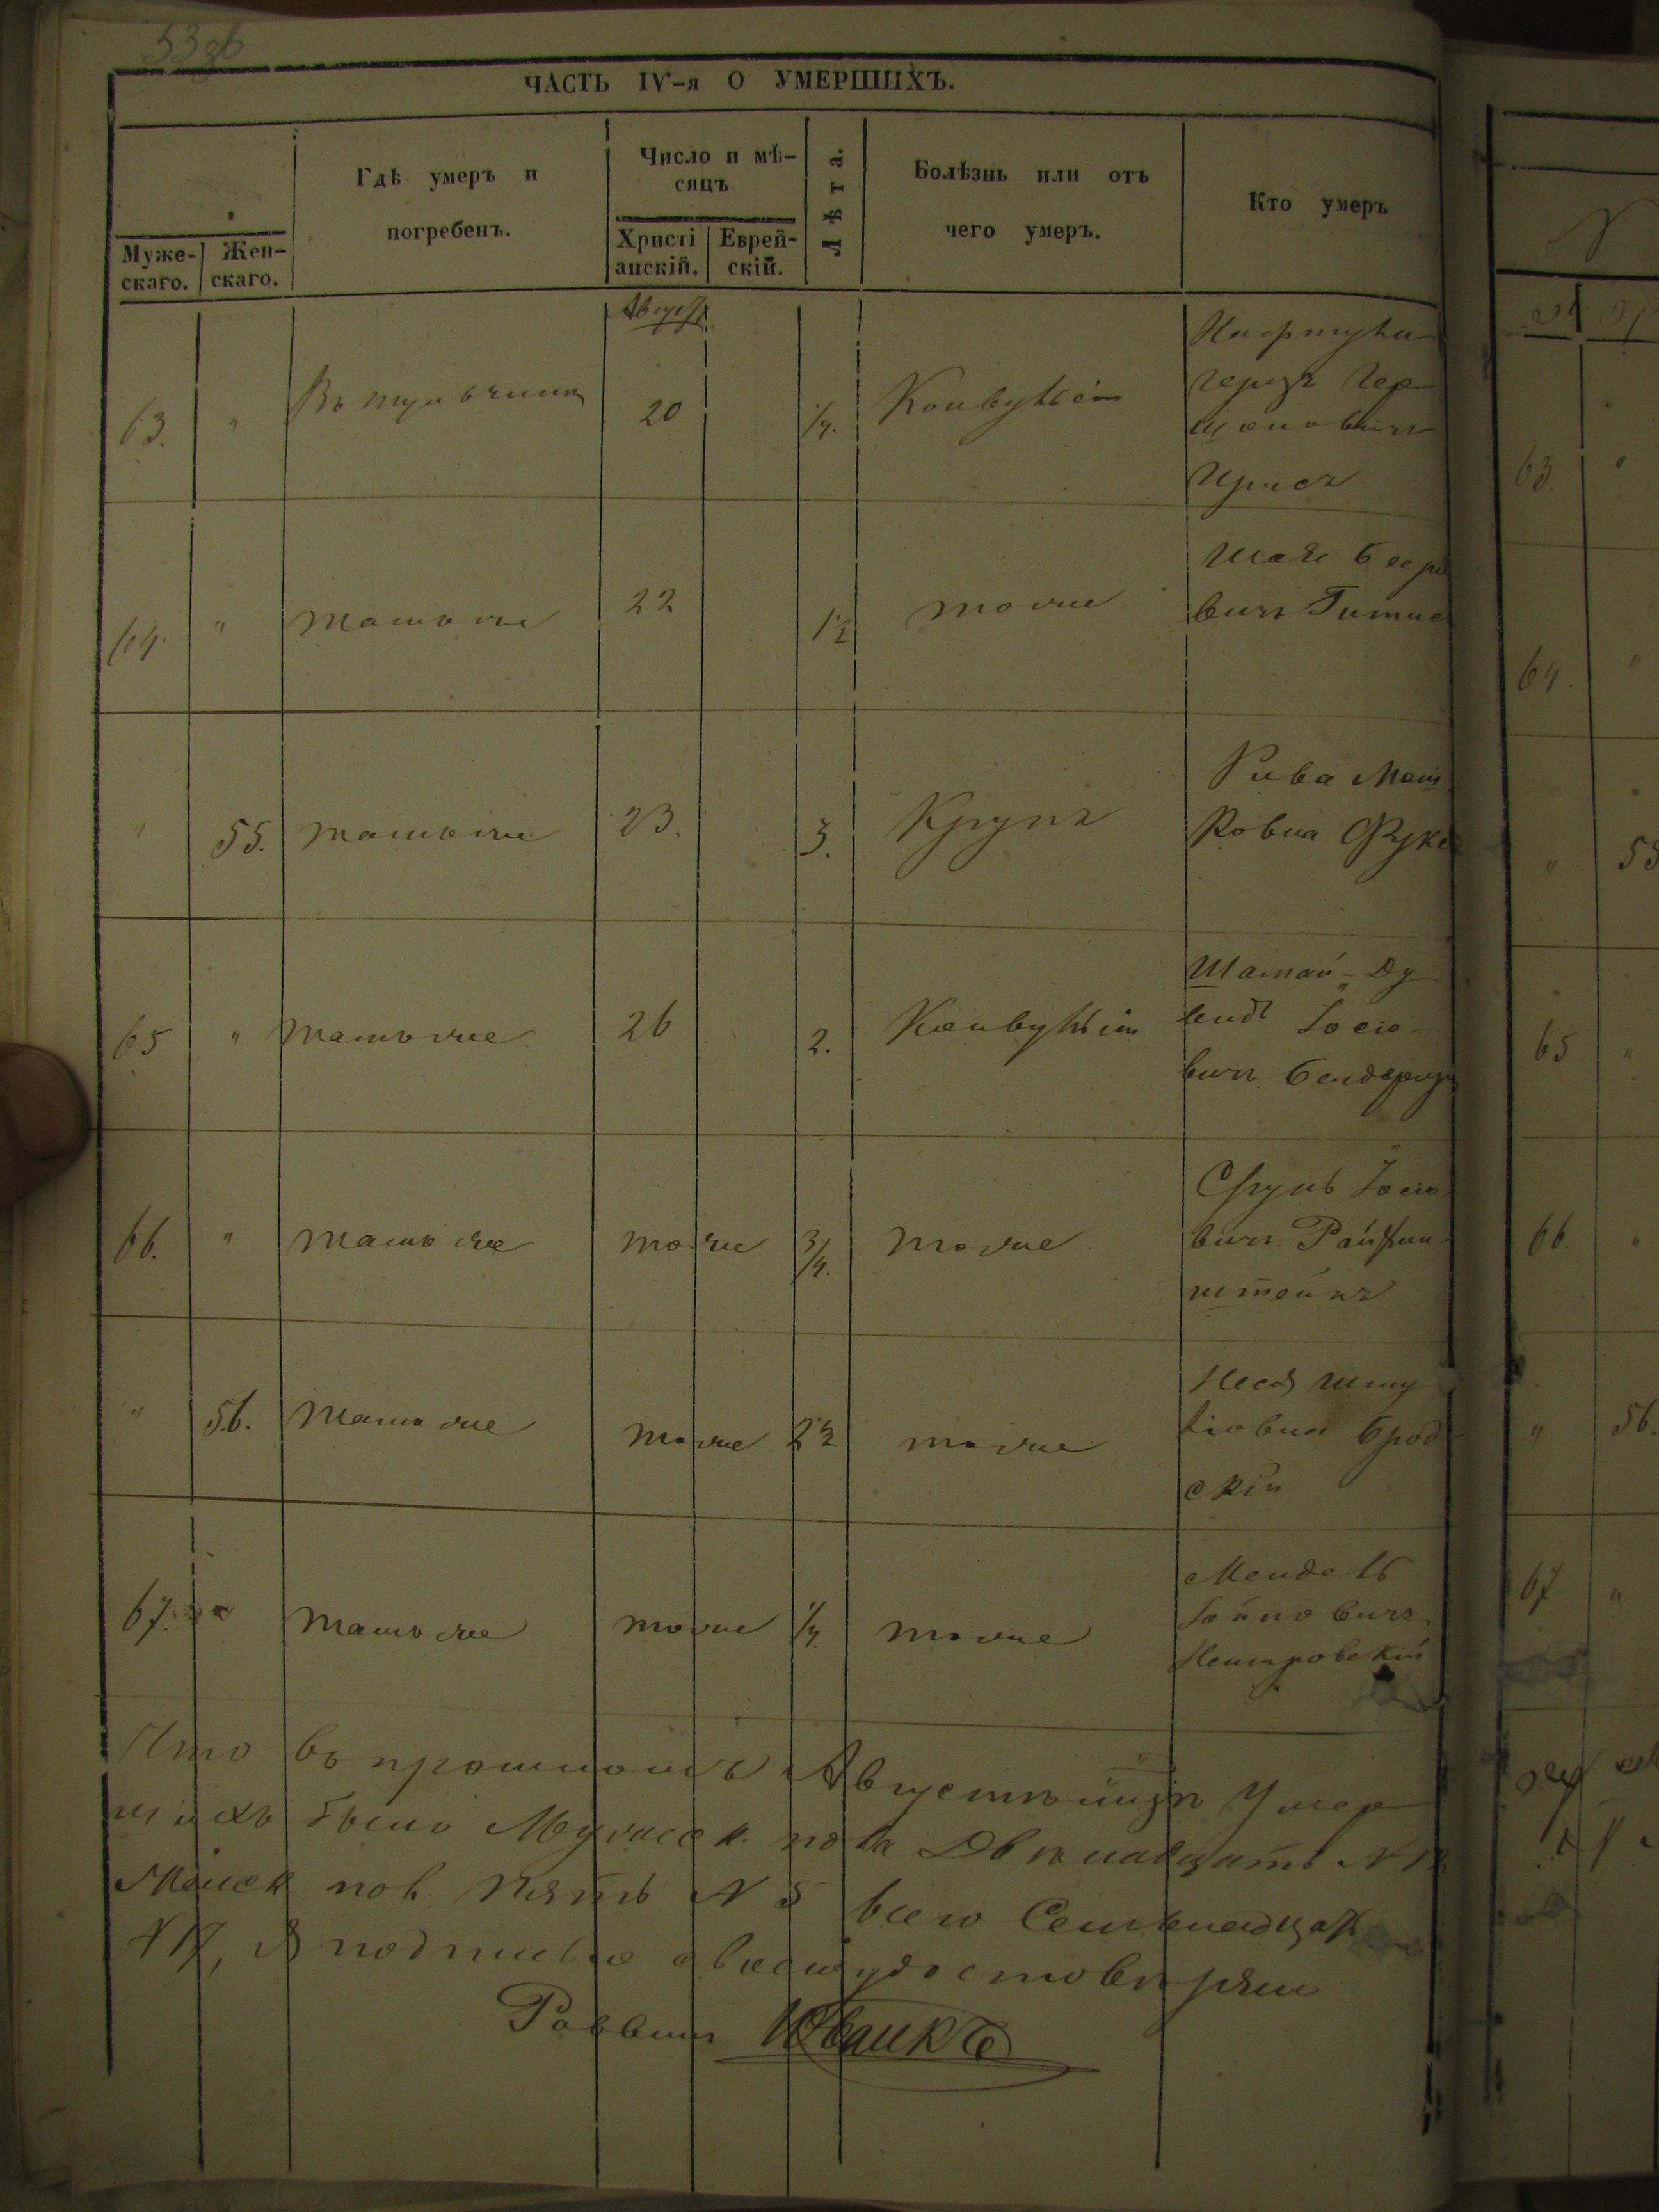 53 об
ЧАСТЬ IV-я О УМЕРШИХЪ.
Муже-скаго.
Жен-скаго.
Гдѣ умеръ и
погребенъ.
Число и мѣ-
сяцъ
Христі
анскій.
Еврей-
скій.
Лѣта.
Болѣзнь или отъ
чего умеръ.
Кто умеръ
Августъ
63. " Въ Тульчинѣ 20 1/4. Конвульсіи
Герцъ Гер
шоновичъ
64. " тамъ же 22 1 1/2 тоже
Шая Беро
вичъ
" 55. тамъ же 23. 3. Крупъ
Рива Мош
ковна Фукс
65 " тамъ же 26 2. Конвульсіи
Шамай-Ду
видъ Іосіо
вичъ Бендерскій
66. " тамъ же тоже 3/4. тоже
Сруль Іосіо
вичъ Райхин
штейнъ
" 56. тамъ же тоже 2 1/2 тоже
Неся Шму
ліовна Брод
скій
67. " тамъ же тоже 1/4. тоже
Мендель
Іойновичъ
Немировскій
Что въ прошломъ Августѣ мцѣ Умер
шихъ было Мужеск. пола Двѣнадцать N 12
Женск пол. Пять N 5 всего Семьнадцать
N 17, въ подписью свое удостовѣряю
Раввинъ
63 "
64. "
" 55
65 "
66. "
" 56.
67 "